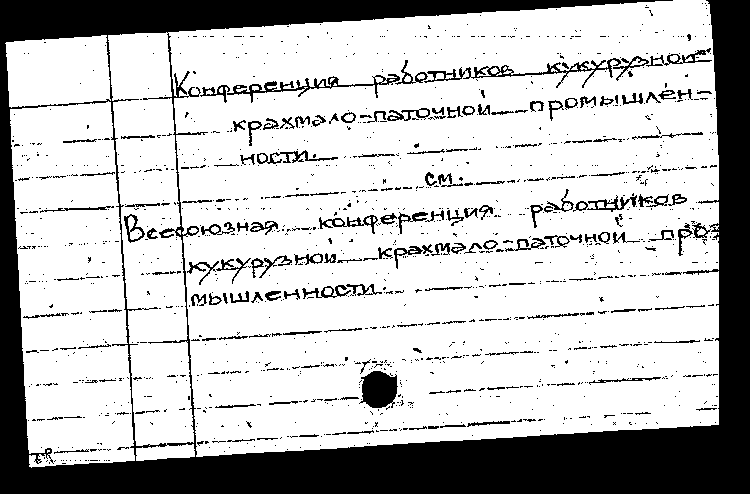 Конференция работников кукурузной
крахмало-паточной промышлен-
ности.
см.
Всесоюзная конференция работников
кукурузной крахмало-паточной про-
мышленности.